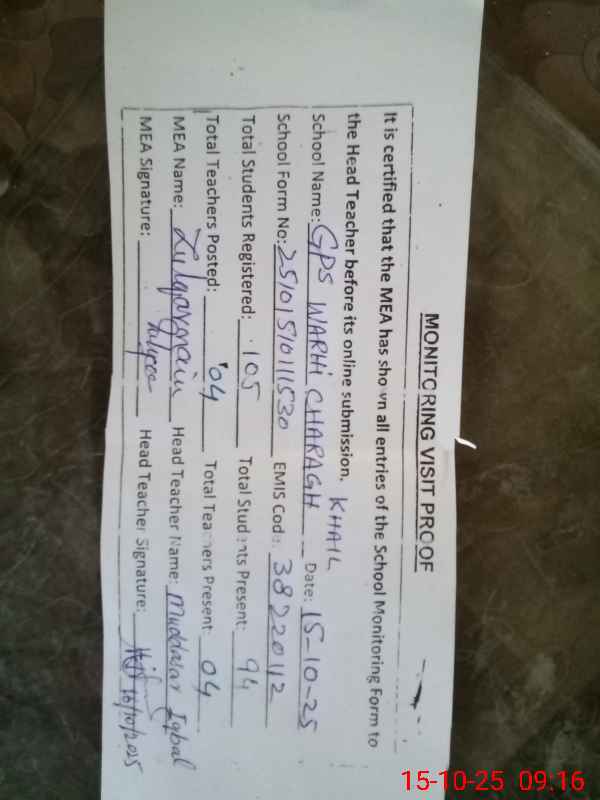 MONITORING VISIT PROOF
It is certified that the MEA has shown all entries of the School Monitoring Form to
the Head Teacher before its online submission.
School Name: GPS WARHI CHARAGH KHAIL Date: 15-10-25
School Form No: 25101510111530 EMIS Code: 38220112
Total Students Registered: 105 Total Students Present: 94
Total Teachers Posted: 04 Total Teachers Present: 04
MEA Name: Zulqarnain Head Teacher Name: Muddasar Iqbal
MEA Signature: Head Teacher Signature:
15-10-25 09:16